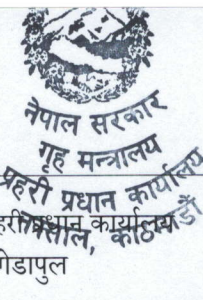 नेपाल सरकार
गृह मन्त्रालय
प्रहरी प्रधान कार्यालय
नक्साल, काठमाडौं
हरी प्रधान कार्यालय
गेडापुल